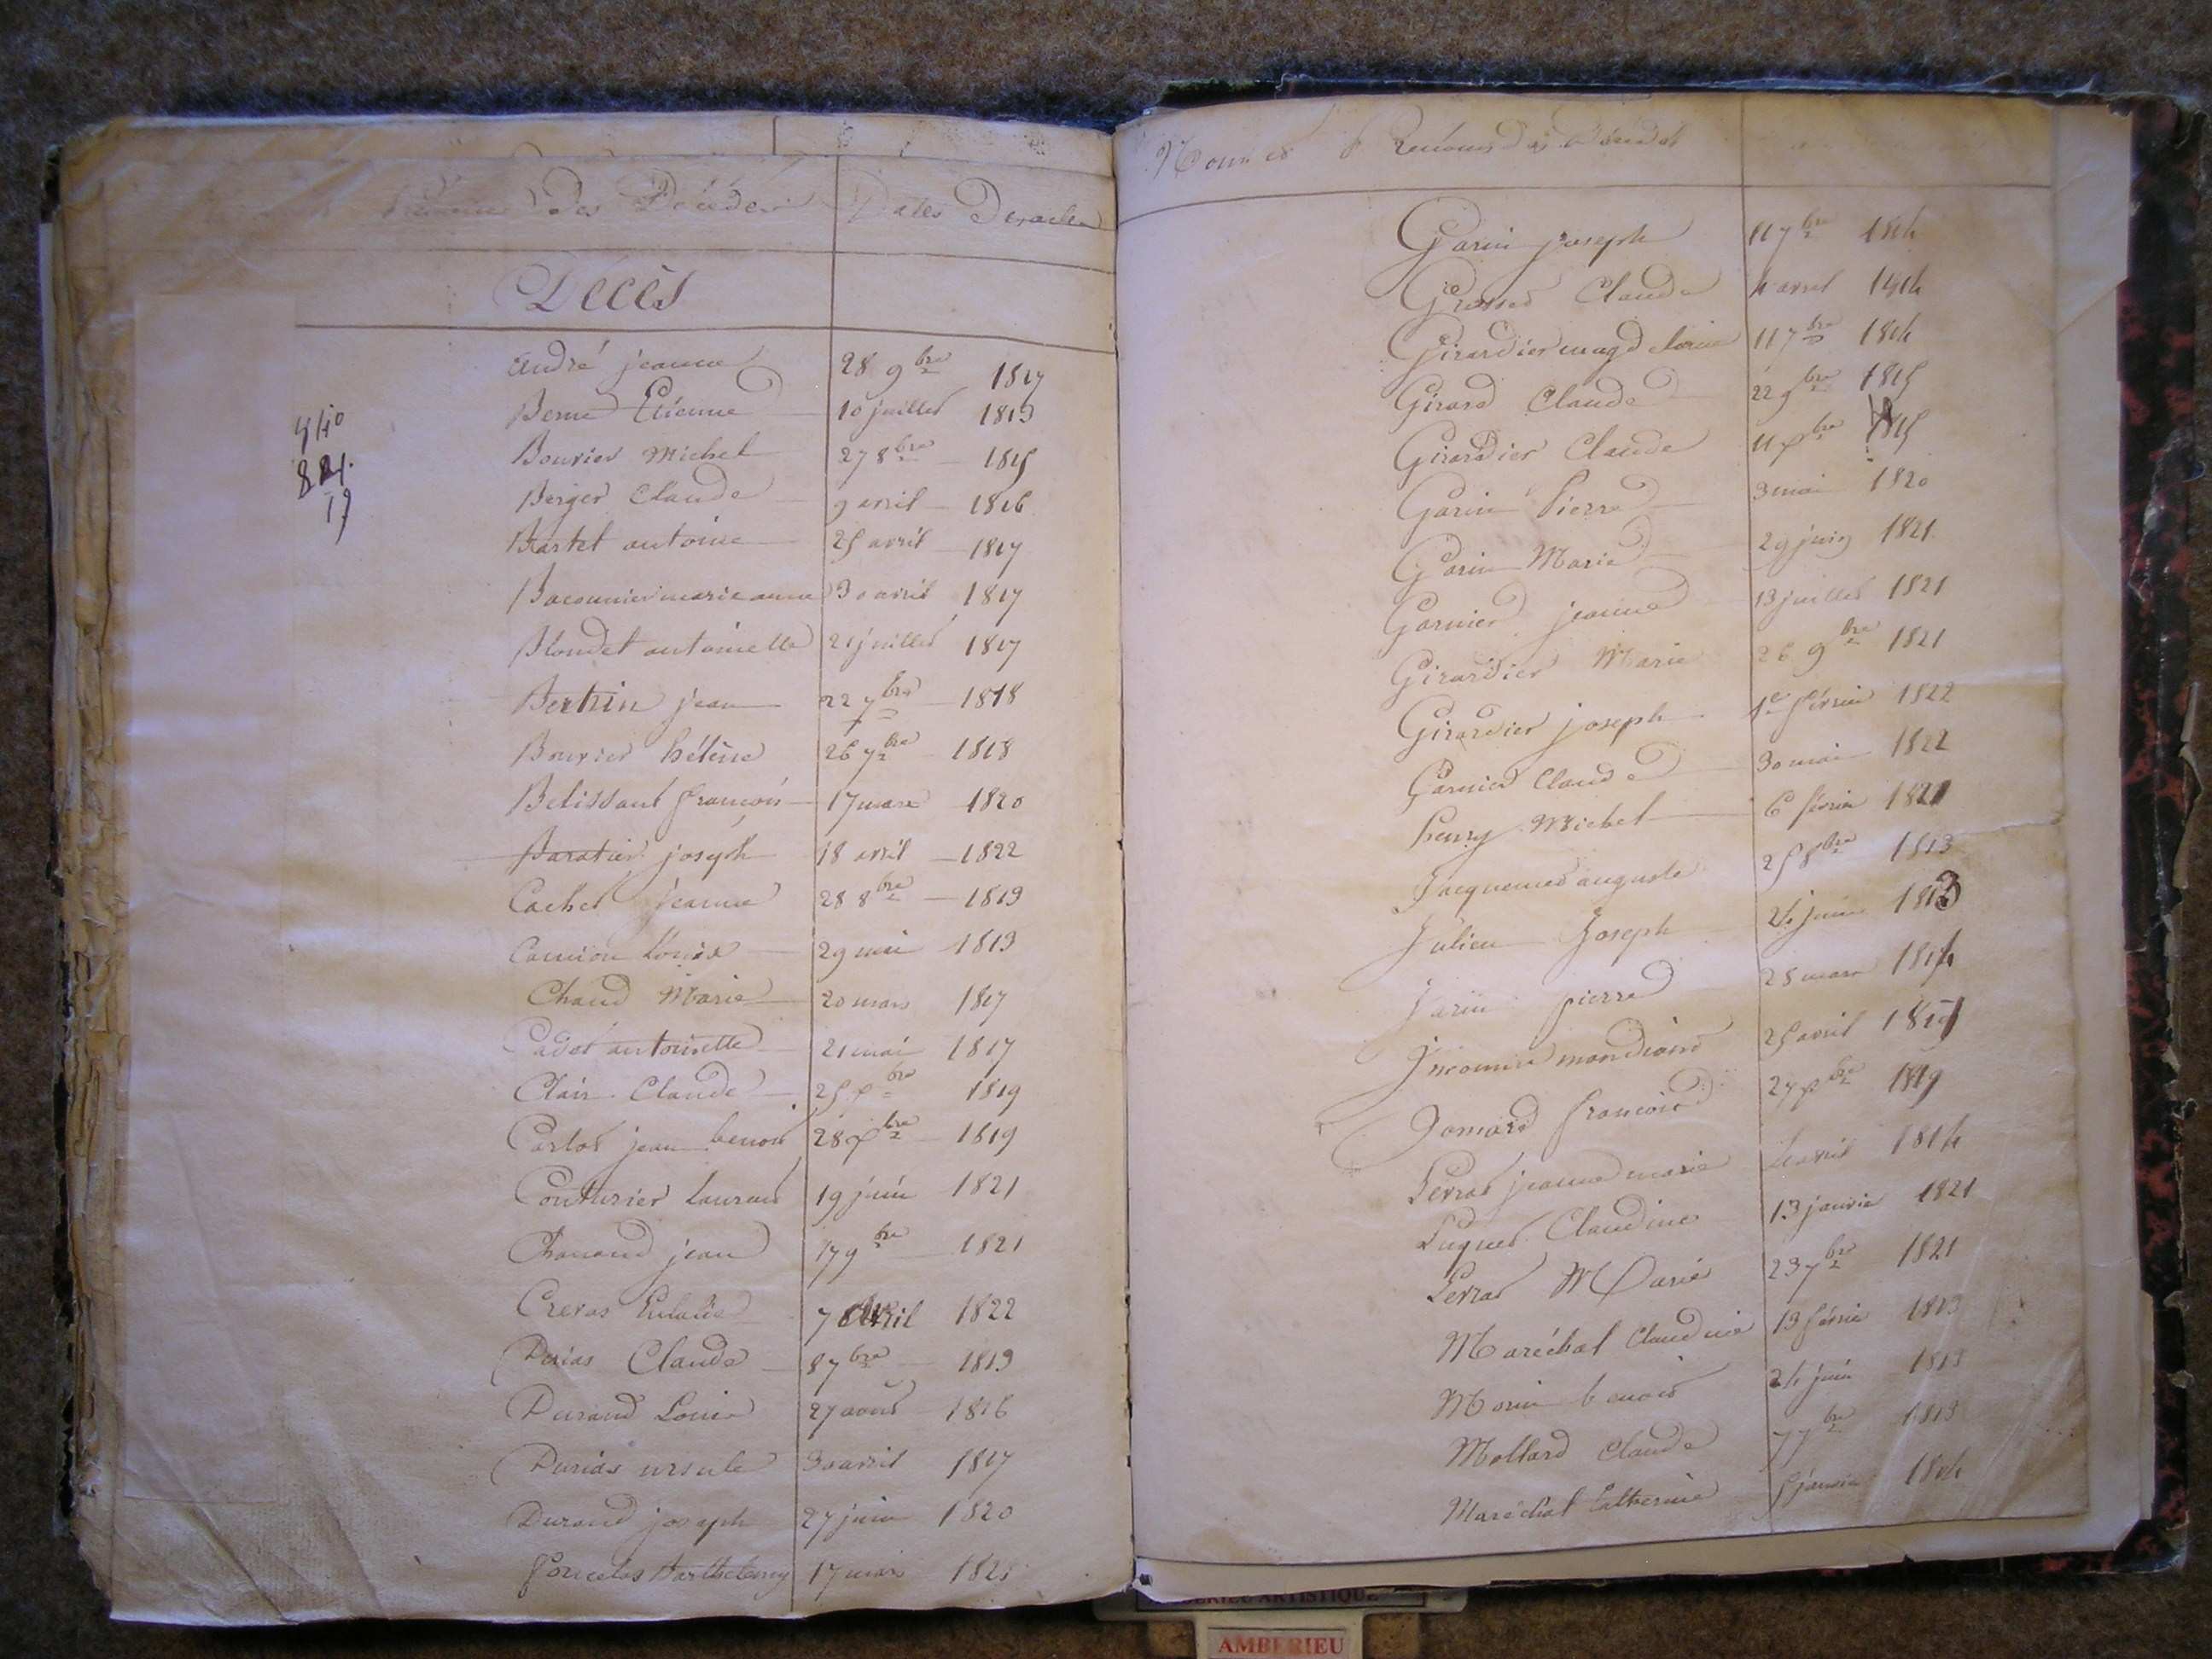 Prénoms Des Décédés Dates Des actes
Décès
André jeanne 28 9bre 1817
Berne Etienne 10 juillet 1813
Bouvier Michel 27 8bre 1815
Berger Claude 9 avril 1816
Bartet antoine 25 avril 1817
Baconnier marie anne 30 avril 1817
Blondet antoinette 21 juillet 1817
Berthin jean 22 7bre 1818
Bouvier hélène 26 7bre 1818
Belissant françois 17 mars 1820
Baratier joseph 18 avril 1822
Cachet jeanne 28 8bre 1813
Camion Louise 29 mai 1813
Chaud Marie 20 mars 1817
Cadot antoinette 21 mai 1817
Clair Claude 25 Xbre 1819
Carlot jean benoit 28 Xbre 1819
Couturier Laurent 19 juin 1821
Chanand jean 17 9bre 1821
Crevas Eulalie 7 avril 1822
Durias Claude 8 7bre 1813
Durand Louis 27 août 1816
Durias ursule 30 avril 1817
Durand joseph 27 juin 1820
Barthelemy 17 mars
Noms & Prénoms des Décédés
Garin joseph 11 7bre 1814
Claude 4 avril 1814
Girardier magdelaine 11 7bre 1814
Girard Claude 22 9bre 1815
Girardier Claude 11 Xbre 1815
Garin Pierre 3 mai 1820
Garin Marie 29 juin 1821
Garnier jeanne 13 juillet 1821
Girardier Marie 26 9bre 1821
Girardier joseph 1er février 1822
Garnier Claude 30 mai 1822
henry Michel 6 février 1821
Jacquemet auguste 25 8bre 1813
Julien Joseph 24 juin 1813
Jarin pierre 25 mars 1814
Inconnu mandiant 25 avril 1817
Jomard françois 27 Xbre 1819
Perrat jeanne marie 4 avril 1814
Luquet Claudine 13 janvier 1821
Perrat Marie 23 7bre 1821
Maréchal Claudine 13 février 1813
Morin benoit 24 juin 1813
Mollard Claude 7 7bre 1813
Maréchal Catherine 5 janvier 1814
ARTISTIQUE
AMBERIEU